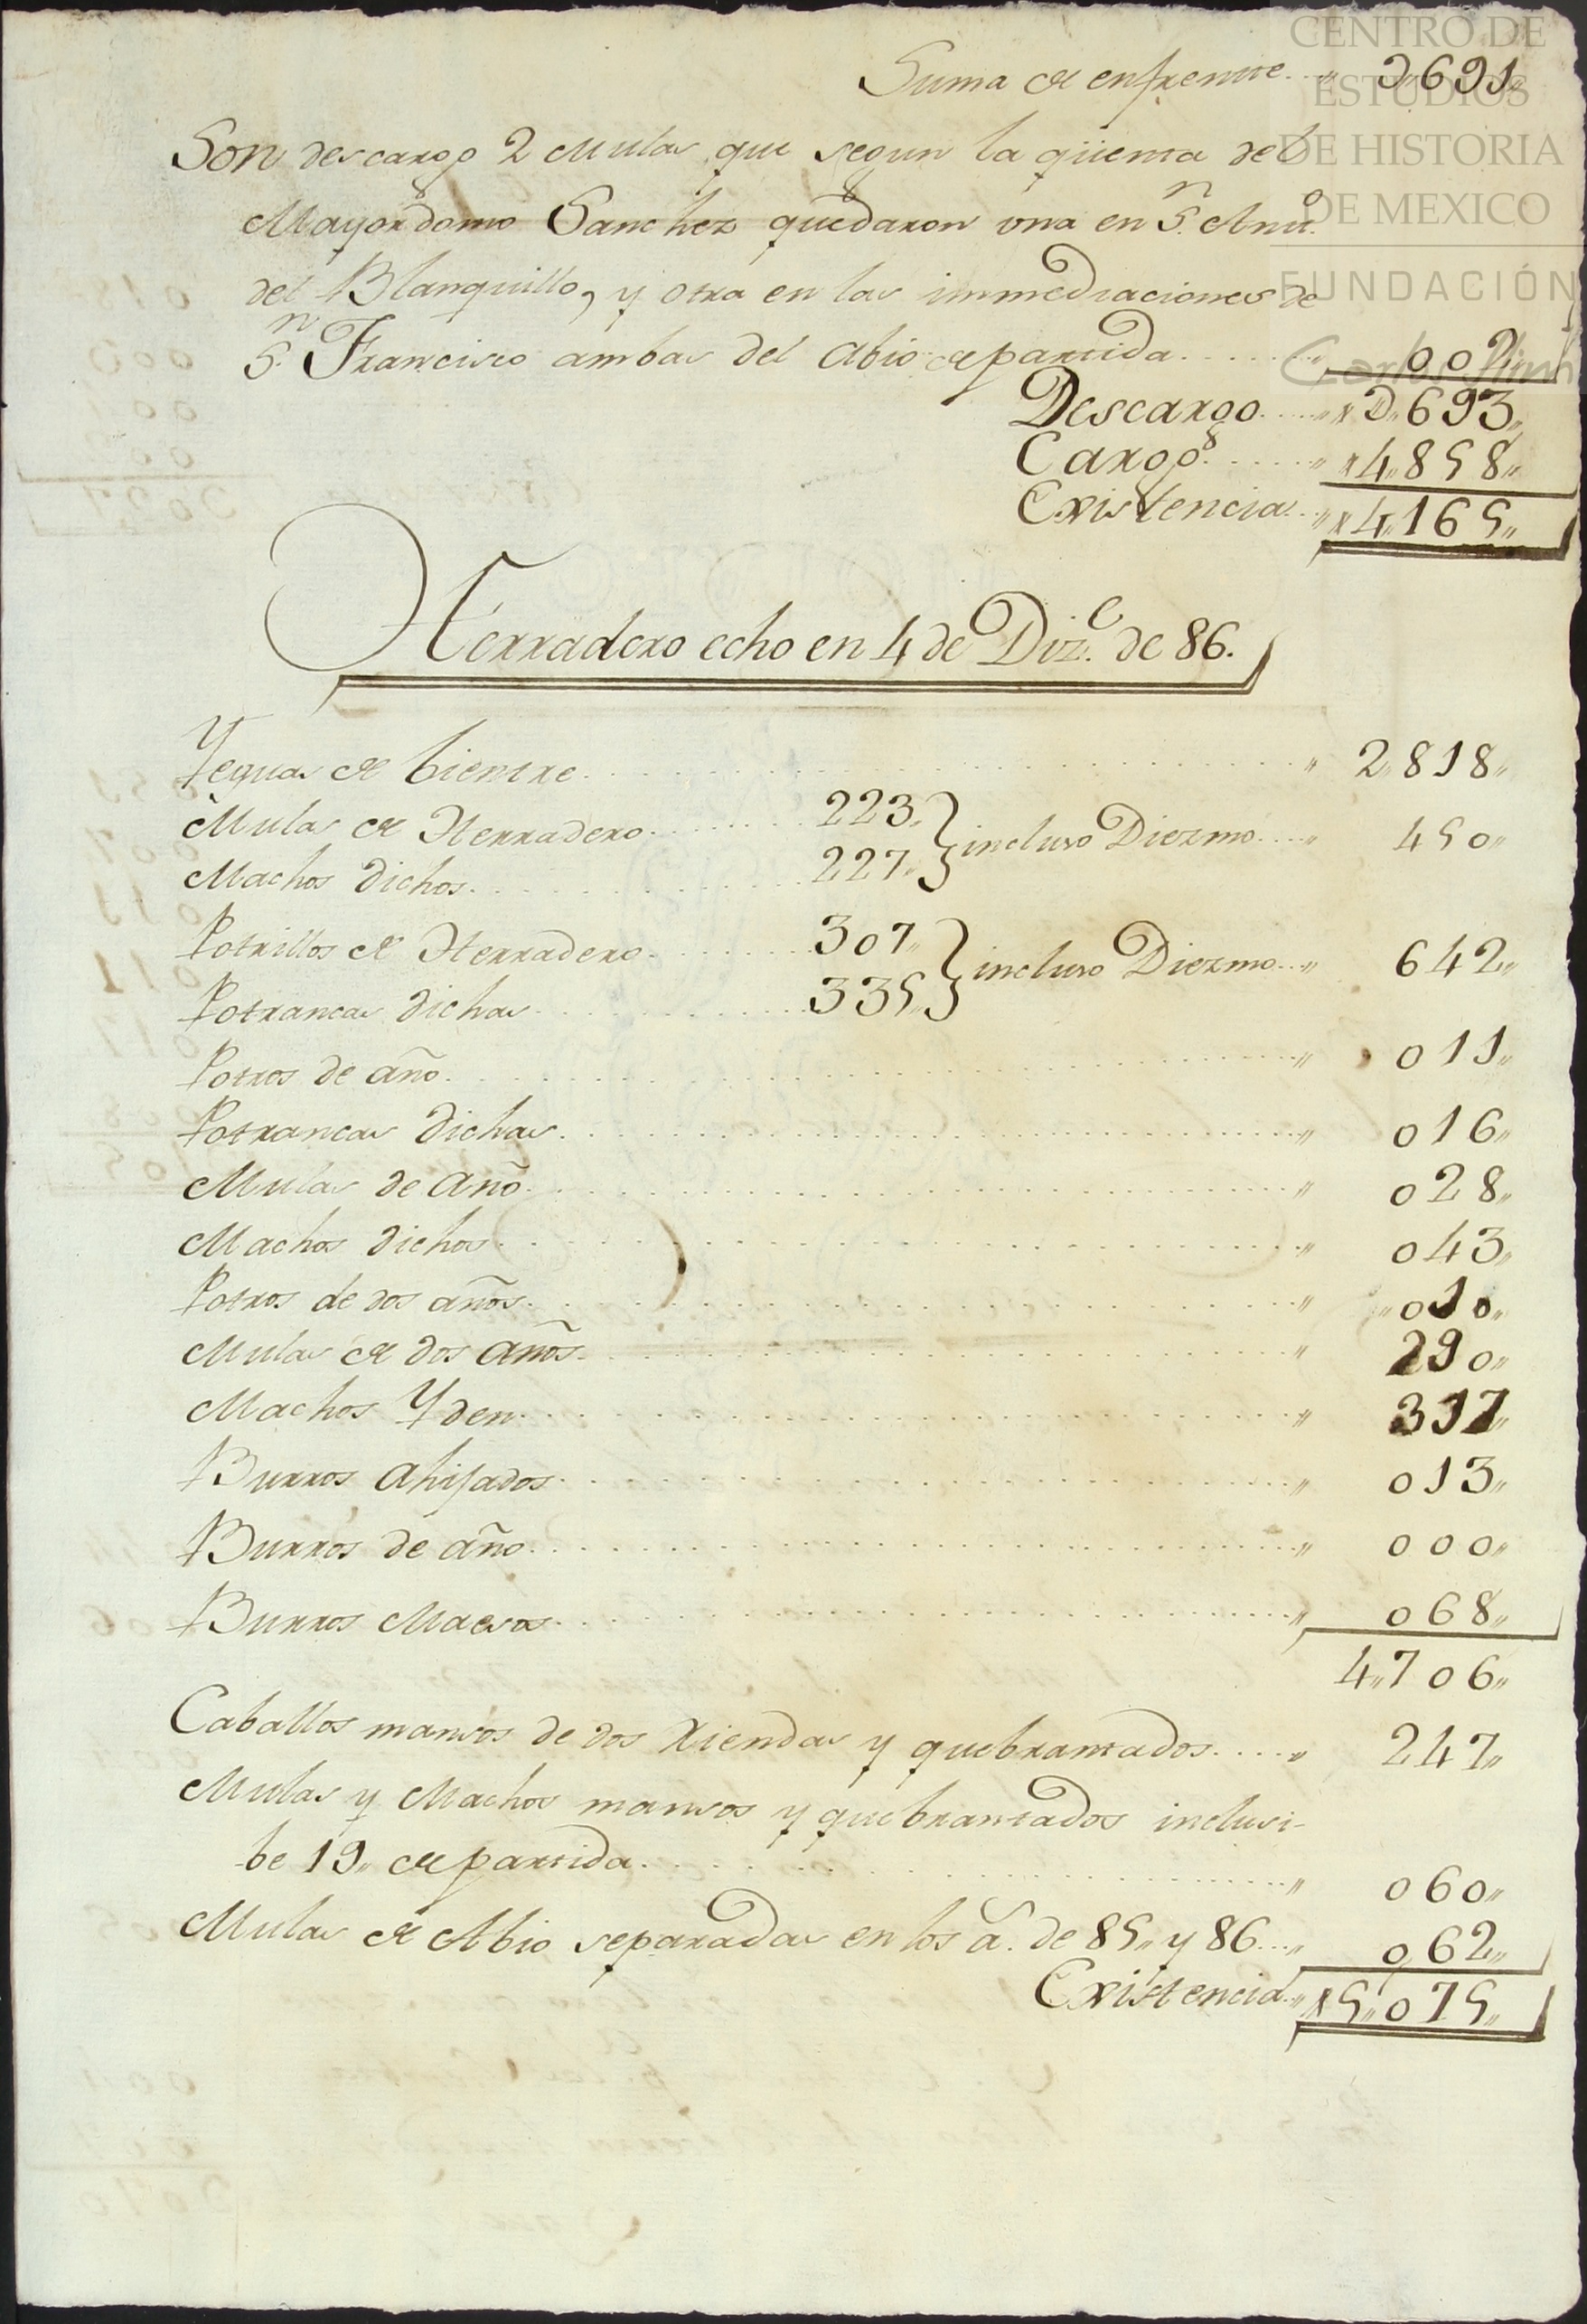 CENTRO DE
ESTUDIOS
DE HISTORIA
DE MEXICO
FUNDACIÓN
Carlos Slim
Suma de enfrente.. „ Ɔ„691„
Son descargo 2 Mulas que segun la qüenta del
Mayordomo Sanchez quedaron una en S.n Anto.
del Blanquillo, y otra en las immediaciones de
S.n Francisco ambas del abio de partida........„ 002„
Descargo....„ Ɔ„693„
Cargo......„ 4„858„
Existencia..„ 4„165„
Herradero echo en 4 de Diz.e de 86.
Yeguas de bientre.......„ 2„818„
Mulas de Herradero....... 223„
incluso Diezmo....„ 450„
Machos dichos....... 227„
Potrillos de Herradero....... 307„
incluso Diezmo..„ 642„
Potrancas dichas....... 335„
Potros de año.......„ 011„
Potrancas dichas.......„ 016„
Mulas de año.......„ 028„
Machos dichos.......„ 043„
Potros de dos años.......„ 010„
Mulas de dos años.......„ 290„
Machos Yden.......„ 317„
Burros ahijados.......„ 013„
Burros de año.......„ 000„
Burros Maesos.......„ 068„
4„706„
Caballos mansos de dos riendas y quebrantados....„ 247„
Mulas y Machos mansos y quebrantados inclusi-
be 19„ de partida.......„ 060„
Mulas de Abio separadas en los a.s de 85„ y 86...„ 062„
Existencia..„ 5„075„